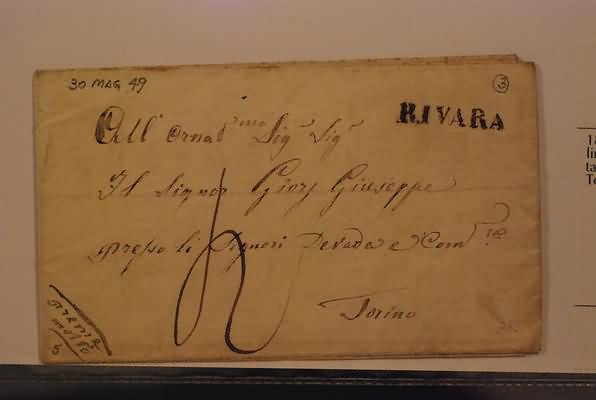 30 MAG 49
3
RIVARA
All' Ornat.mo Sig.r Sig.r
Il Signor Giors Giuseppe
presso li Signori Devada e Com.ia
Torino
preme
molto